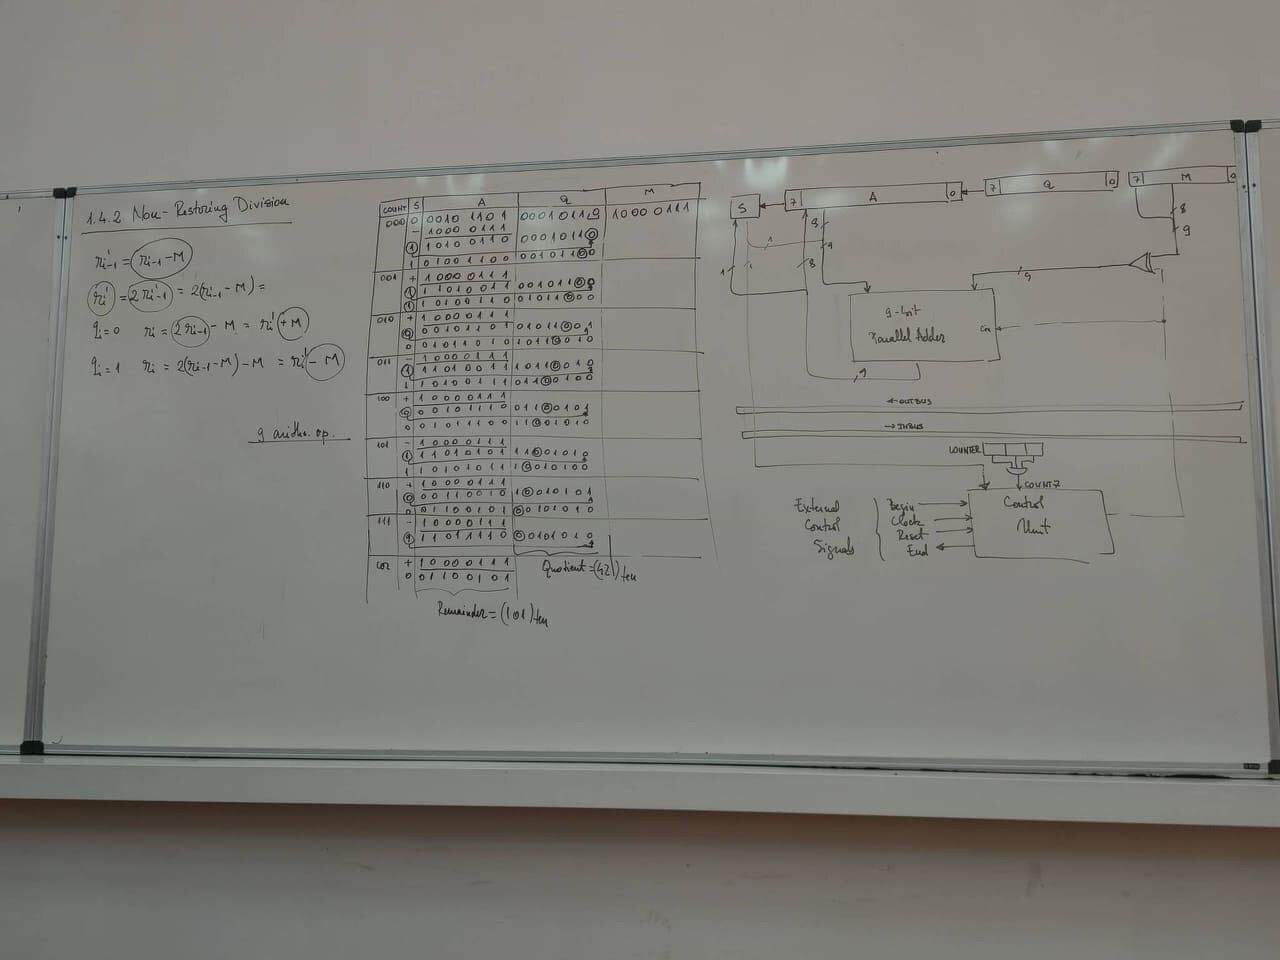 1.4.2 Non-Restoring Division
r'i-1 = ri-1 - M
r'i = 2r'i-1 = 2(ri-1 - M) =
qi=0 ri = 2ri-1 - M = r'i + M
qi=1 ri = 2(ri-1 - M) - M = r'i - M
9 arithm. op.
COUNT S A Q M
000 0 0010 1101 0001011 0 1000 0111
- 1000 0111
1 1010 0110 00010110
1 01001100 00101100
001 + 10000111
1 11010011 00101100
1 10100110 01011000
010 + 10000111
0 00101101 01011001
0 01011010 10110010
011 - 10000111
1 11010011 10110010
1 10100111 01100100
100 + 10000111
0 00101110 01100101
0 01011100 11001010
101 - 10000111
1 11010101 11001010
1 10101011 10010100
110 + 10000111
0 00110010 10010101
0 01100100 00101010
111 - 10000111
1 11011110 00101010
COR + 10000111
0 01100101
Quotient = (42)ten
Remainder = (101)ten
S 7 A 0 7 Q 0 7 M 0
8
9
8
9
1
9
1
8
9
9-bit
Parallel Adder
Cin
9
← OUTBUS
→ INBUS
COUNTER
COUNT7
External
Control
Signals
Begin
Clock
Reset
End
Control
Unit